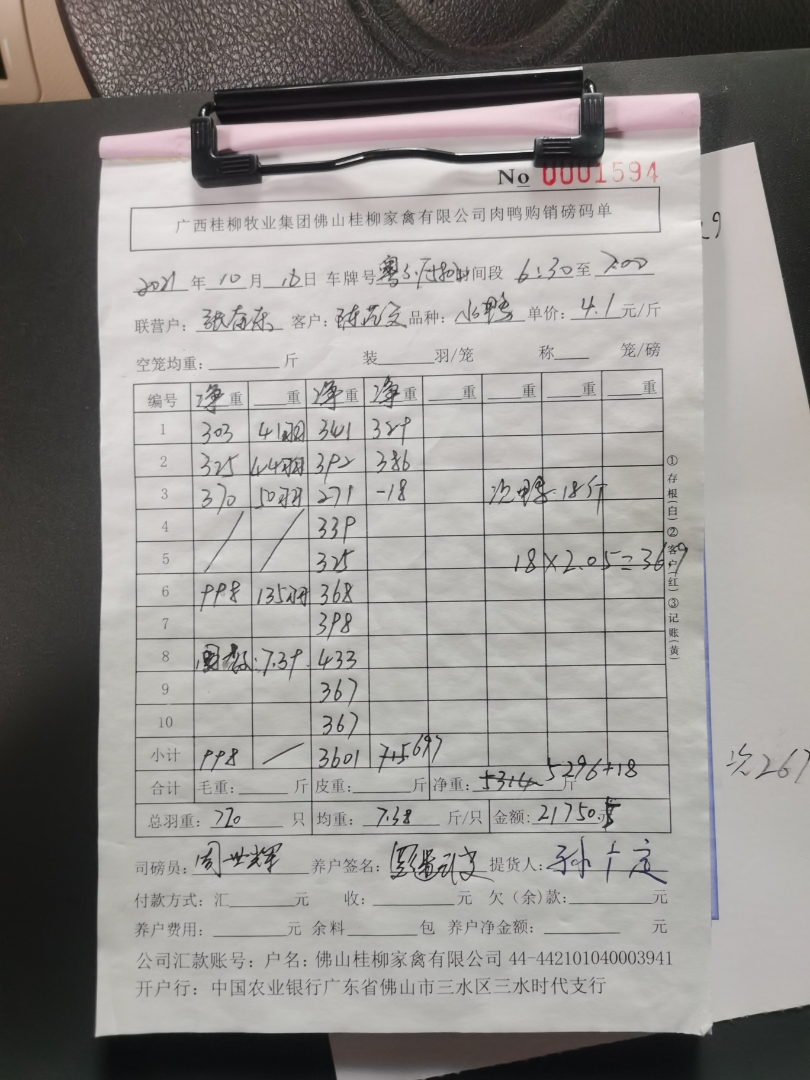 No 0001594
广西桂柳牧业集团佛山桂柳家禽有限公司肉鸭购销磅码单
2021 年 10 月 16 日 车牌号 时间段 6:30 至 7:00
联营户: 客户: 品种: 水鸭 单价: 4.1 元/斤
空笼均重: 斤 装 羽/笼 称 笼/磅
编号 净重 重 净重 净重 重 重 重 重
1 303 41羽 341 329
2 325 44羽 392 386
3 370 50羽 271 -18 次鸭 18斤
4 / / 339
5 325 18×2.05=36.9
6 998 135羽 368
7 398
8 :7.39 433
9 367
10 367
小计 998 / 3601 697
合计 毛重: 斤 皮重: 斤 净重: 5296+18 斤
总羽重: 720 只 均重: 7.38 斤/只 金额: 21750.5
司磅员: 周世辉 养户签名: 提货人: 孙广定
付款方式: 汇 元 收: 元 欠(余)款: 元
养户费用: 元 余料 包 养户净金额: 元
公司汇款账号: 户名: 佛山桂柳家禽有限公司 44-442101040003941
开户行: 中国农业银行广东省佛山市三水区三水时代支行
①存根(白)②客户(红)③记账(黄)
次267